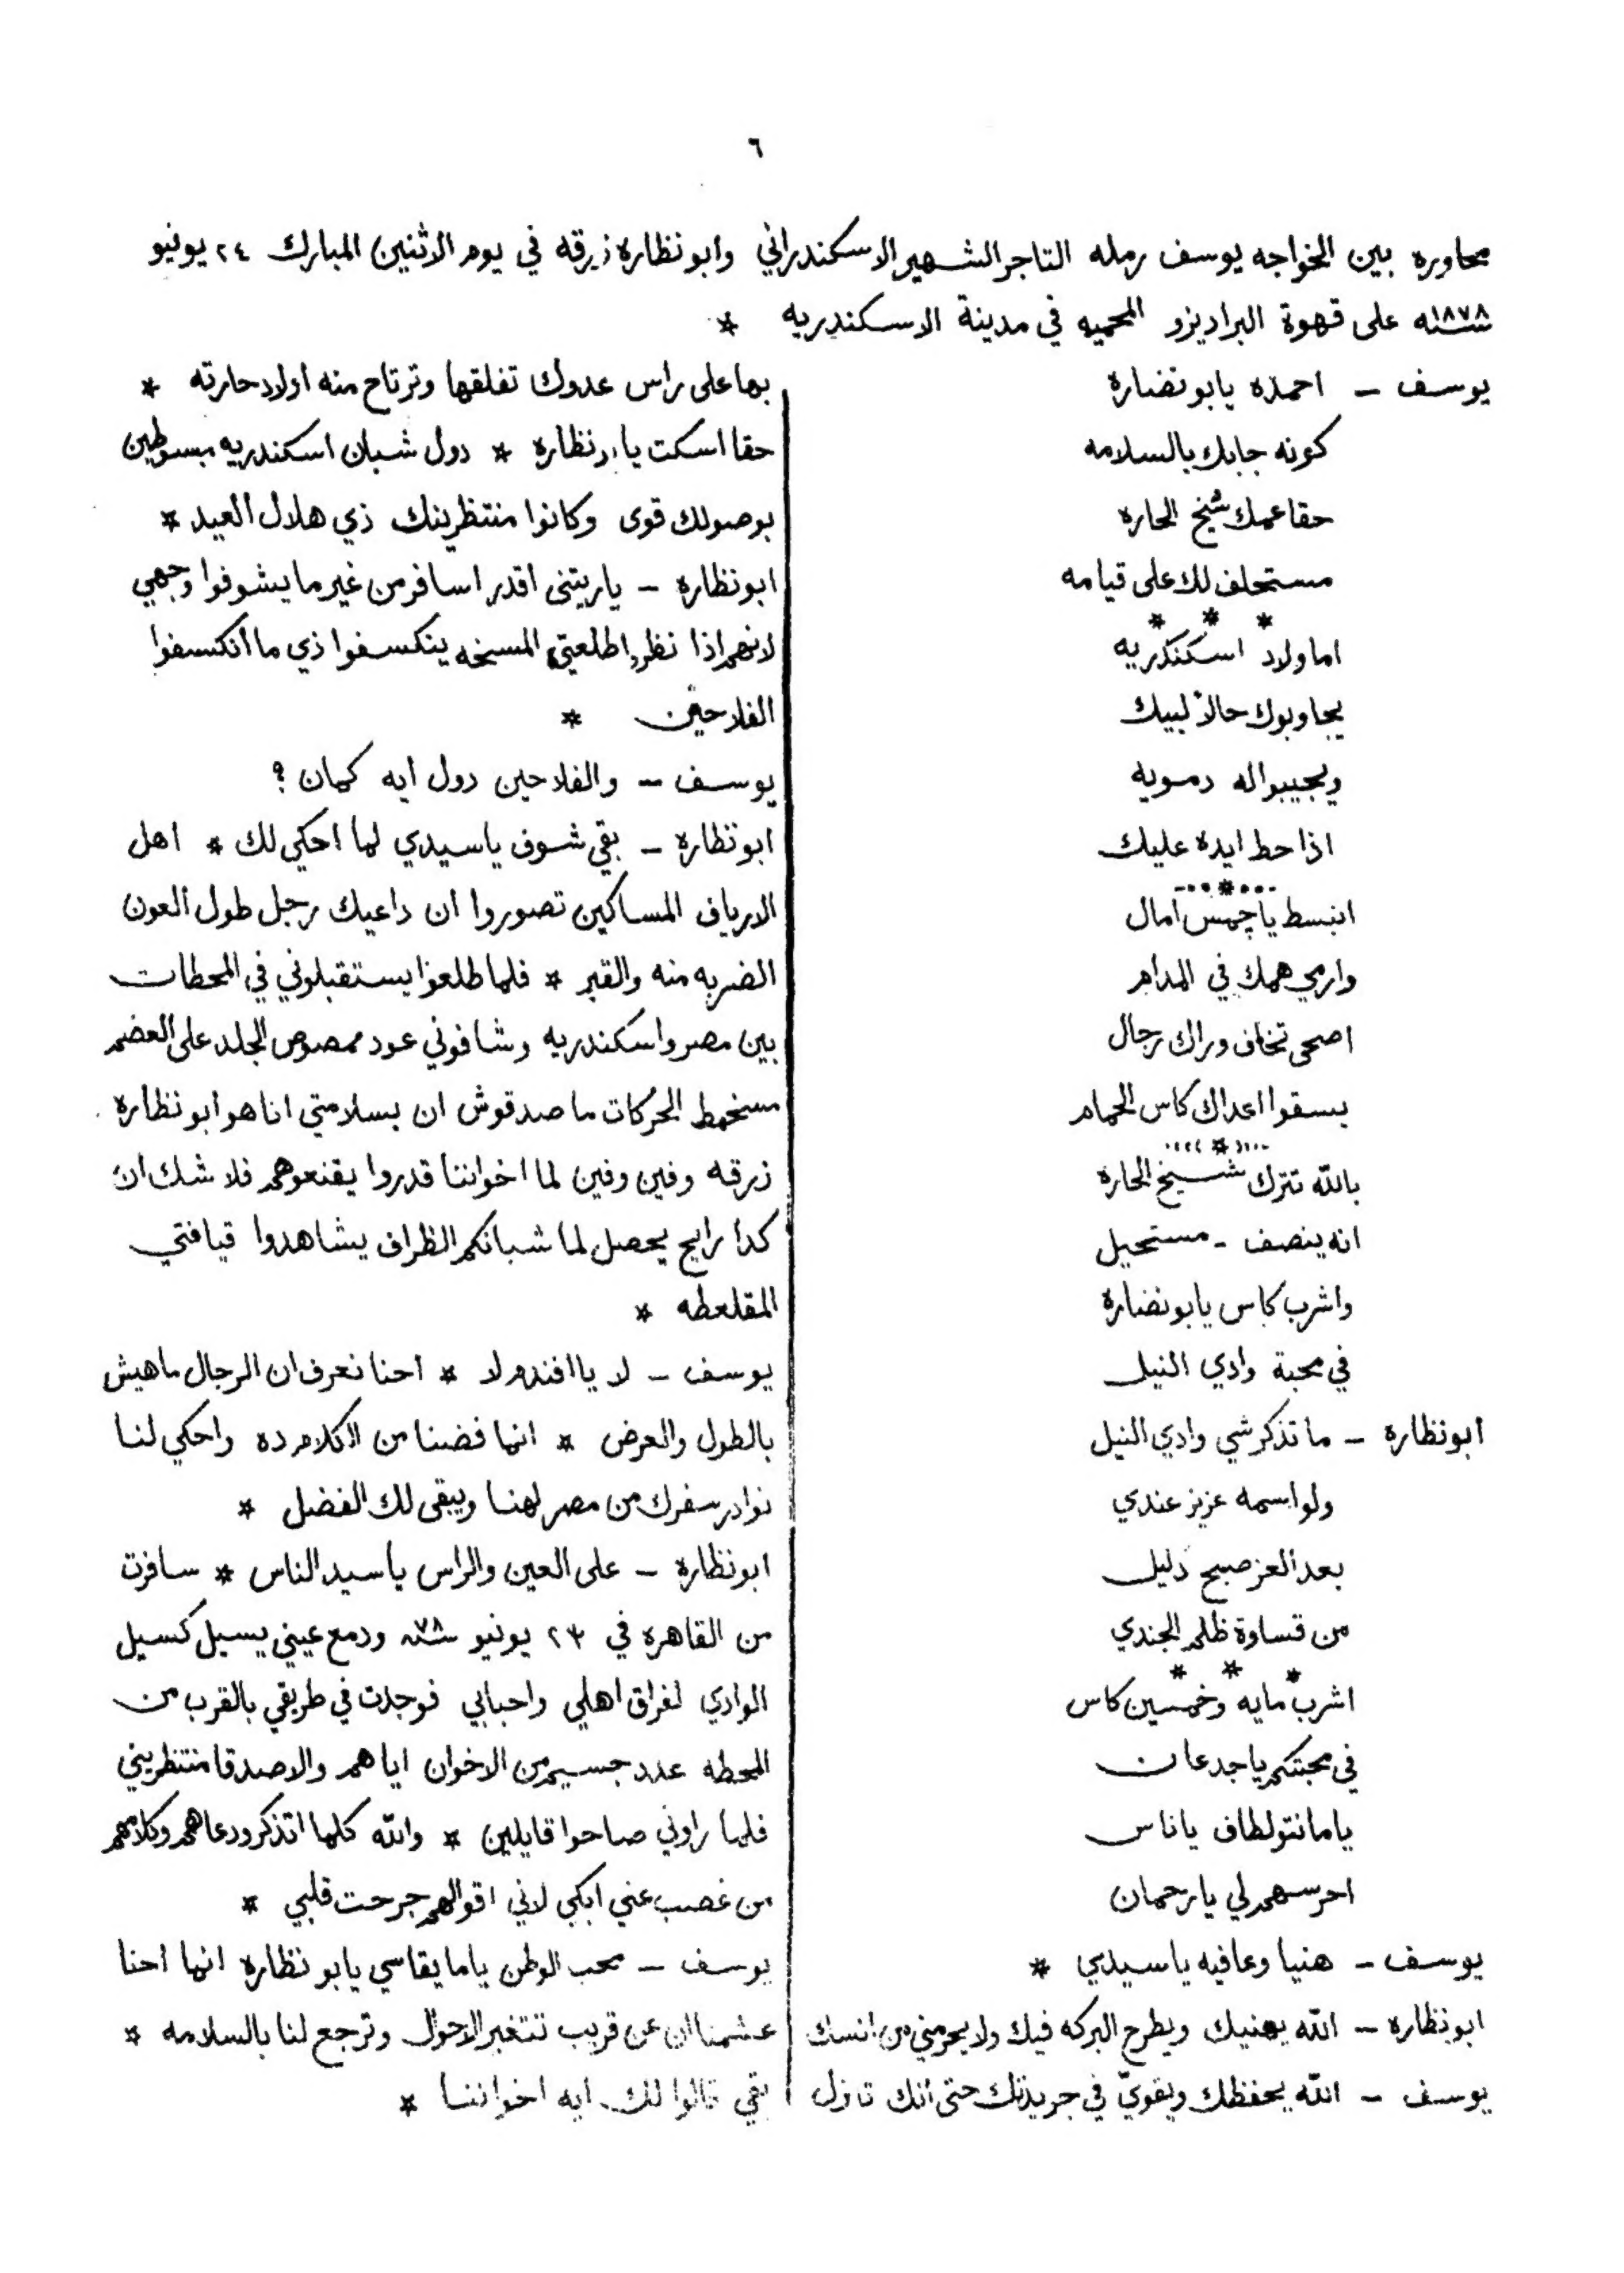 ٦
محاوره بين الخواجه يوسف رمله التاجر الشهير الاسكندراني وابو نظاره زرقه في يوم الاثنين المبارك ٢٤ يونيو
سنه ١٨٧٨ على قهوة البراديزو المحميه في مدينة الاسكندريه *
يوسف – احمده يابو نضاره
كونه جابك بالسلامه
حقا عمك شيخ الحاره
مستحلف لك على قيامه
* * *
اما ولاد اسكندريه
يجاوبوك حالاً لبيك
ويجيبوا له دمويه
اذا حط ايده عليك
٠٠٠*٠٠٠
انبسط يا چمس امال
وارمي همك في المدام
اصحى تخاف وراك رجال
يسقوا اعداك كاس الحمام
٠٠٠*٠٠٠
بالله تترك شيخ الحاره
انه ينصف - مستحيل
واشرب كاس يابو نضاره
في محبة وادي النيل
ابو نظاره – ما تذكرشي وادي النيل
ولو اسمه عزيز عندي
بعد العز صبح دليل
من قساوة ظلم الجندي
* * *
اشرب مايه وخمسين كاس
في محبتكم يا جدعان
ياما نتو لطاف يا ناس
احرسهم لي يا رحمان
يوسف – هنيا وعافيه يا سيدي *
ابو نظاره – الله يهنيك ويطرح البركه فيك ولا يحرمني من انسك
يوسف – الله يحفظك ويقويّ في جريدتك حتى انك تنزل
بها على راس عدوك تفلقها وترتاح منه اولاد حارته *
حقا اسكت يابو نظاره * دول شبان اسكندريه مبسوطين
بوصولك قوى وكانوا منتظرينك زي هلال العيد *
ابو نظاره – ياريتنى اقدر اسافر من غير ما يشوفوا وجهي
لانهم اذا نظروا طلعتي المسخه ينكسفوا ذي ما انكسفوا
الفلاحين *
يوسف – والفلاحين دول ايه كمان ؟
ابو نظاره – بقي شوف يا سيدي لما احكي لك * اهل
الارياف المساكين تصوروا ان داعيك رجل طول العون
الضربه منه والقبر * فلما طلعوا يستقبلوني في المحطات
بين مصر واسكندريه وشافوني عود ممصوص الجلد على العضم
مسخمط الحركات ما صدقوش ان بسلامتي انا هو ابو نظاره
زرقه وفين وفين لما اخواننا قدروا يقنعوهم فلا شك ان
كدا رايح يحصل لما شبانكم الظراف يشاهدوا قيافتي
المقلعطه *
يوسف – لا يا افندم لا * احنا نعرف ان الرجال ماهيش
بالطول والعرض * انما فضنا من الكلام ده واحكي لنا
نوادر سفرك من مصر لهنا ويبقى لك الفضل *
ابو نظاره – على العين والراس يا سيد الناس * سافرت
من القاهره في ٢٣ يونيو سنه ٧٨ ودمع عيني يسيل كسيل
الوادي لفراق اهلي واحبابي فوجدت في طريقي بالقرب من
المحطه عدد جسيم من الاخوان اياهم والاصدقا منتظريني
فلما راوني صاحوا قايلين * والله كلما اتذكر ودعاهم وكلامهم
من غصب عني ابكي لاني اقوالهم جرحت قلبي *
يوسف – محب الوطن ياما يقاسي يابو نظاره انما احنا
عشمنا ان عن قريب تتغير الاحوال وترجع لنا بالسلامه *
بقي قالوا لك ايه اخواننا *